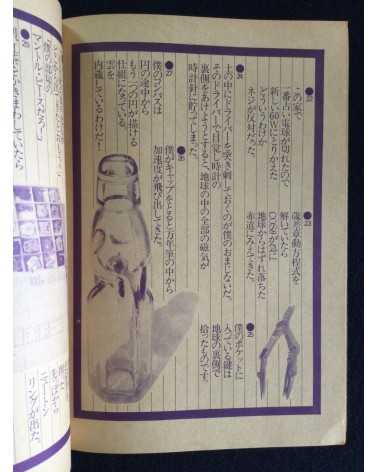 ●22
この家で
一番古い電球が切れたので
新しい60Wにとりかえた
どういうわけか
ネジが反対だった。
●23
歳差章動方程式を
解いていたら
地球からはずれ落ちた
赤道にみえてきた。
●24
土の中にドライバーを突き刺しておくのが僕のおまじないだ。
そのドライバーで目覚し時計の
裏側をあけようとすると、地球の中の全部の磁気が
時計針に貯ってしまった。
●25
僕のポケットに
入っている鍵は
地球の裏側で
拾ったものです。
●26
僕がキャップをとると万年筆の中から
加速度が飛び出してきた。
●27
僕のコンパスは
円の途中から
もう一つの円が描ける
仕組になっている
雲を
内蔵しているわけだ!
マントル・ピースだろう!
かきまわしていたら
ニュートン
リングが出た。